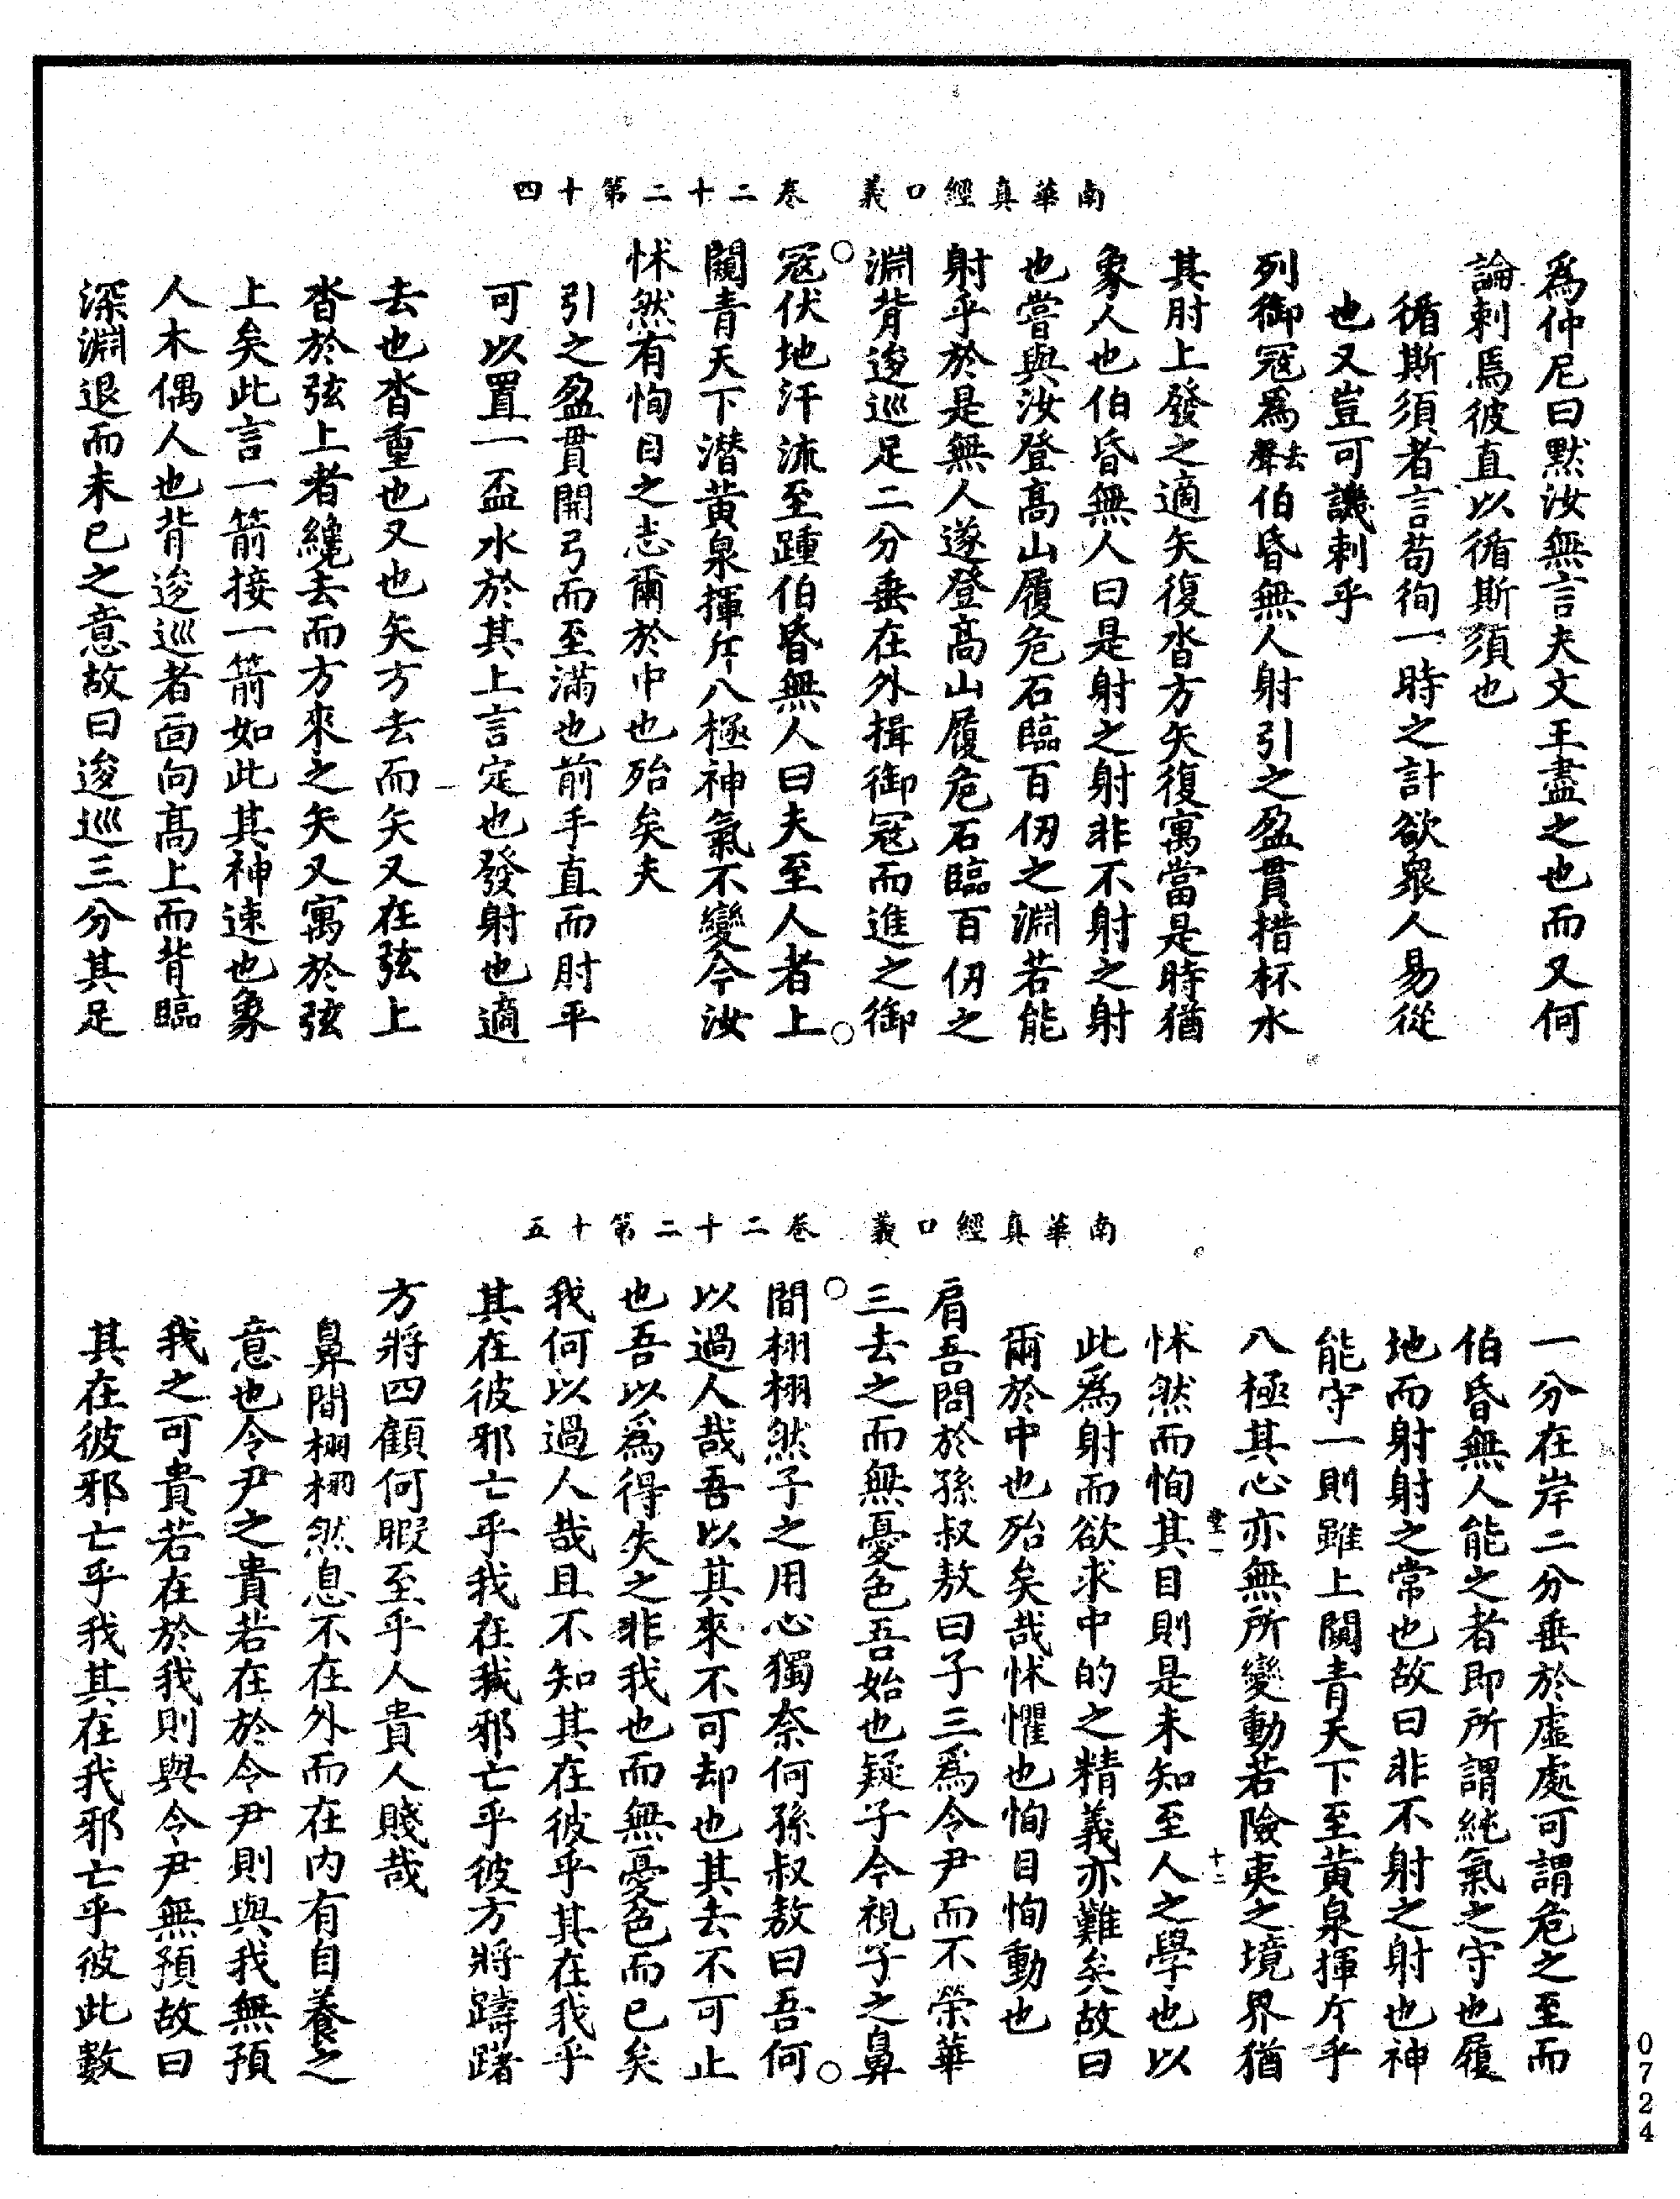 南華真經口義　卷二十二第十四
爲仲尼曰默汝無言夫文王盡之也而又何
論刺焉彼直以循斯須也
循斯須者言苟徇一時之計欲衆人易從
也又豈可譏刺乎
列御寇爲去聲伯昏無人射引之盈貫措杯水
其肘上發之適矢復沓方矢復寓當是時猶
象人也伯昏無人曰是射之射非不射之射
也嘗與汝登高山履危石臨百仞之淵若能
射乎於是無人遂登高山履危石臨百仞之
淵背逡巡足二分垂在外揖御寇而進之御
寇伏地汗流至踵伯昏無人曰夫至人者上
闚青天下潛黃泉揮斥八極神氣不變今汝
怵然有恂目之志爾於中也殆矣夫
引之盈貫開弓而至滿也前手直而肘平
可以置一盃水於其上言定也發射也適
去也沓重也又也矢方去而矢又在弦上
沓於弦上者纔去而方來之矢又寓於弦
上矣此言一箭接一箭如此其神速也象
人木偶人也背逡巡者面向高上而背臨
深淵退而未已之意故曰逡巡三分其足
南華真經口義　卷二十二第十五
一分在岸二分垂於虛處可謂危之至而
伯昏無人能之者即所謂純氣之守也履
地而射射之常也故曰非不射之射也神
能守一則雖上闚青天下至黃泉揮斥乎
八極其心亦無所變動若險夷之境界猶
怵然而恂其目則是未知至人之學也以
此爲射而欲求中的之精義亦難矣故曰
爾於中也殆矣哉怵懼也恂目恂動也
肩吾問於孫叔敖曰子三爲令尹而不榮華
三去之而無憂色吾始也疑子今視子之鼻
間栩栩然子之用心獨奈何孫叔敖曰吾何
以過人哉吾以其來不可却也其去不可止
也吾以爲得失之非我也而無憂色而已矣
我何以過人哉且不知其在彼乎其在我乎
其在彼邪亡乎我在我邪亡乎彼方將躊躇
方將四顧何暇至乎人貴人賤哉
鼻間栩栩然息不在外而在内有自養之
意也令尹之貴若在於令尹則與我無預
我之可貴若在於我則與令尹無預故曰
其在彼邪亡乎我其在我邪亡乎彼此數
0724